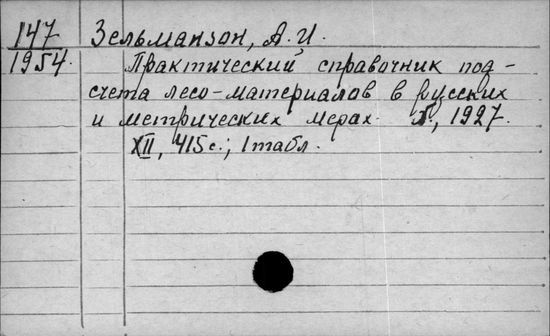 147 Зельманзон, А. И.
1954. Практический справочник под-
счета лесо-материалов в русских
и метрических мерах. Л., 1927.
XII, 415 с.; 1 табл.